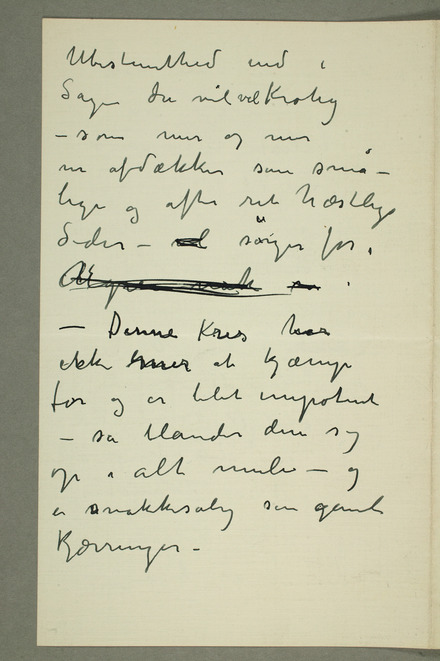 Ubestemthed ind i
Sagen da vil vel Krohg
– som mer og mer
nu afdækker som små–
lige og ofte ret hæslige
Sider – sørger for,
– Denne Kres har
ikke mer at kjæmpe
for og er blet impotent
– så blander den sig
op i alt muli – og
er snakkesalig som gamle
Kjærringer –